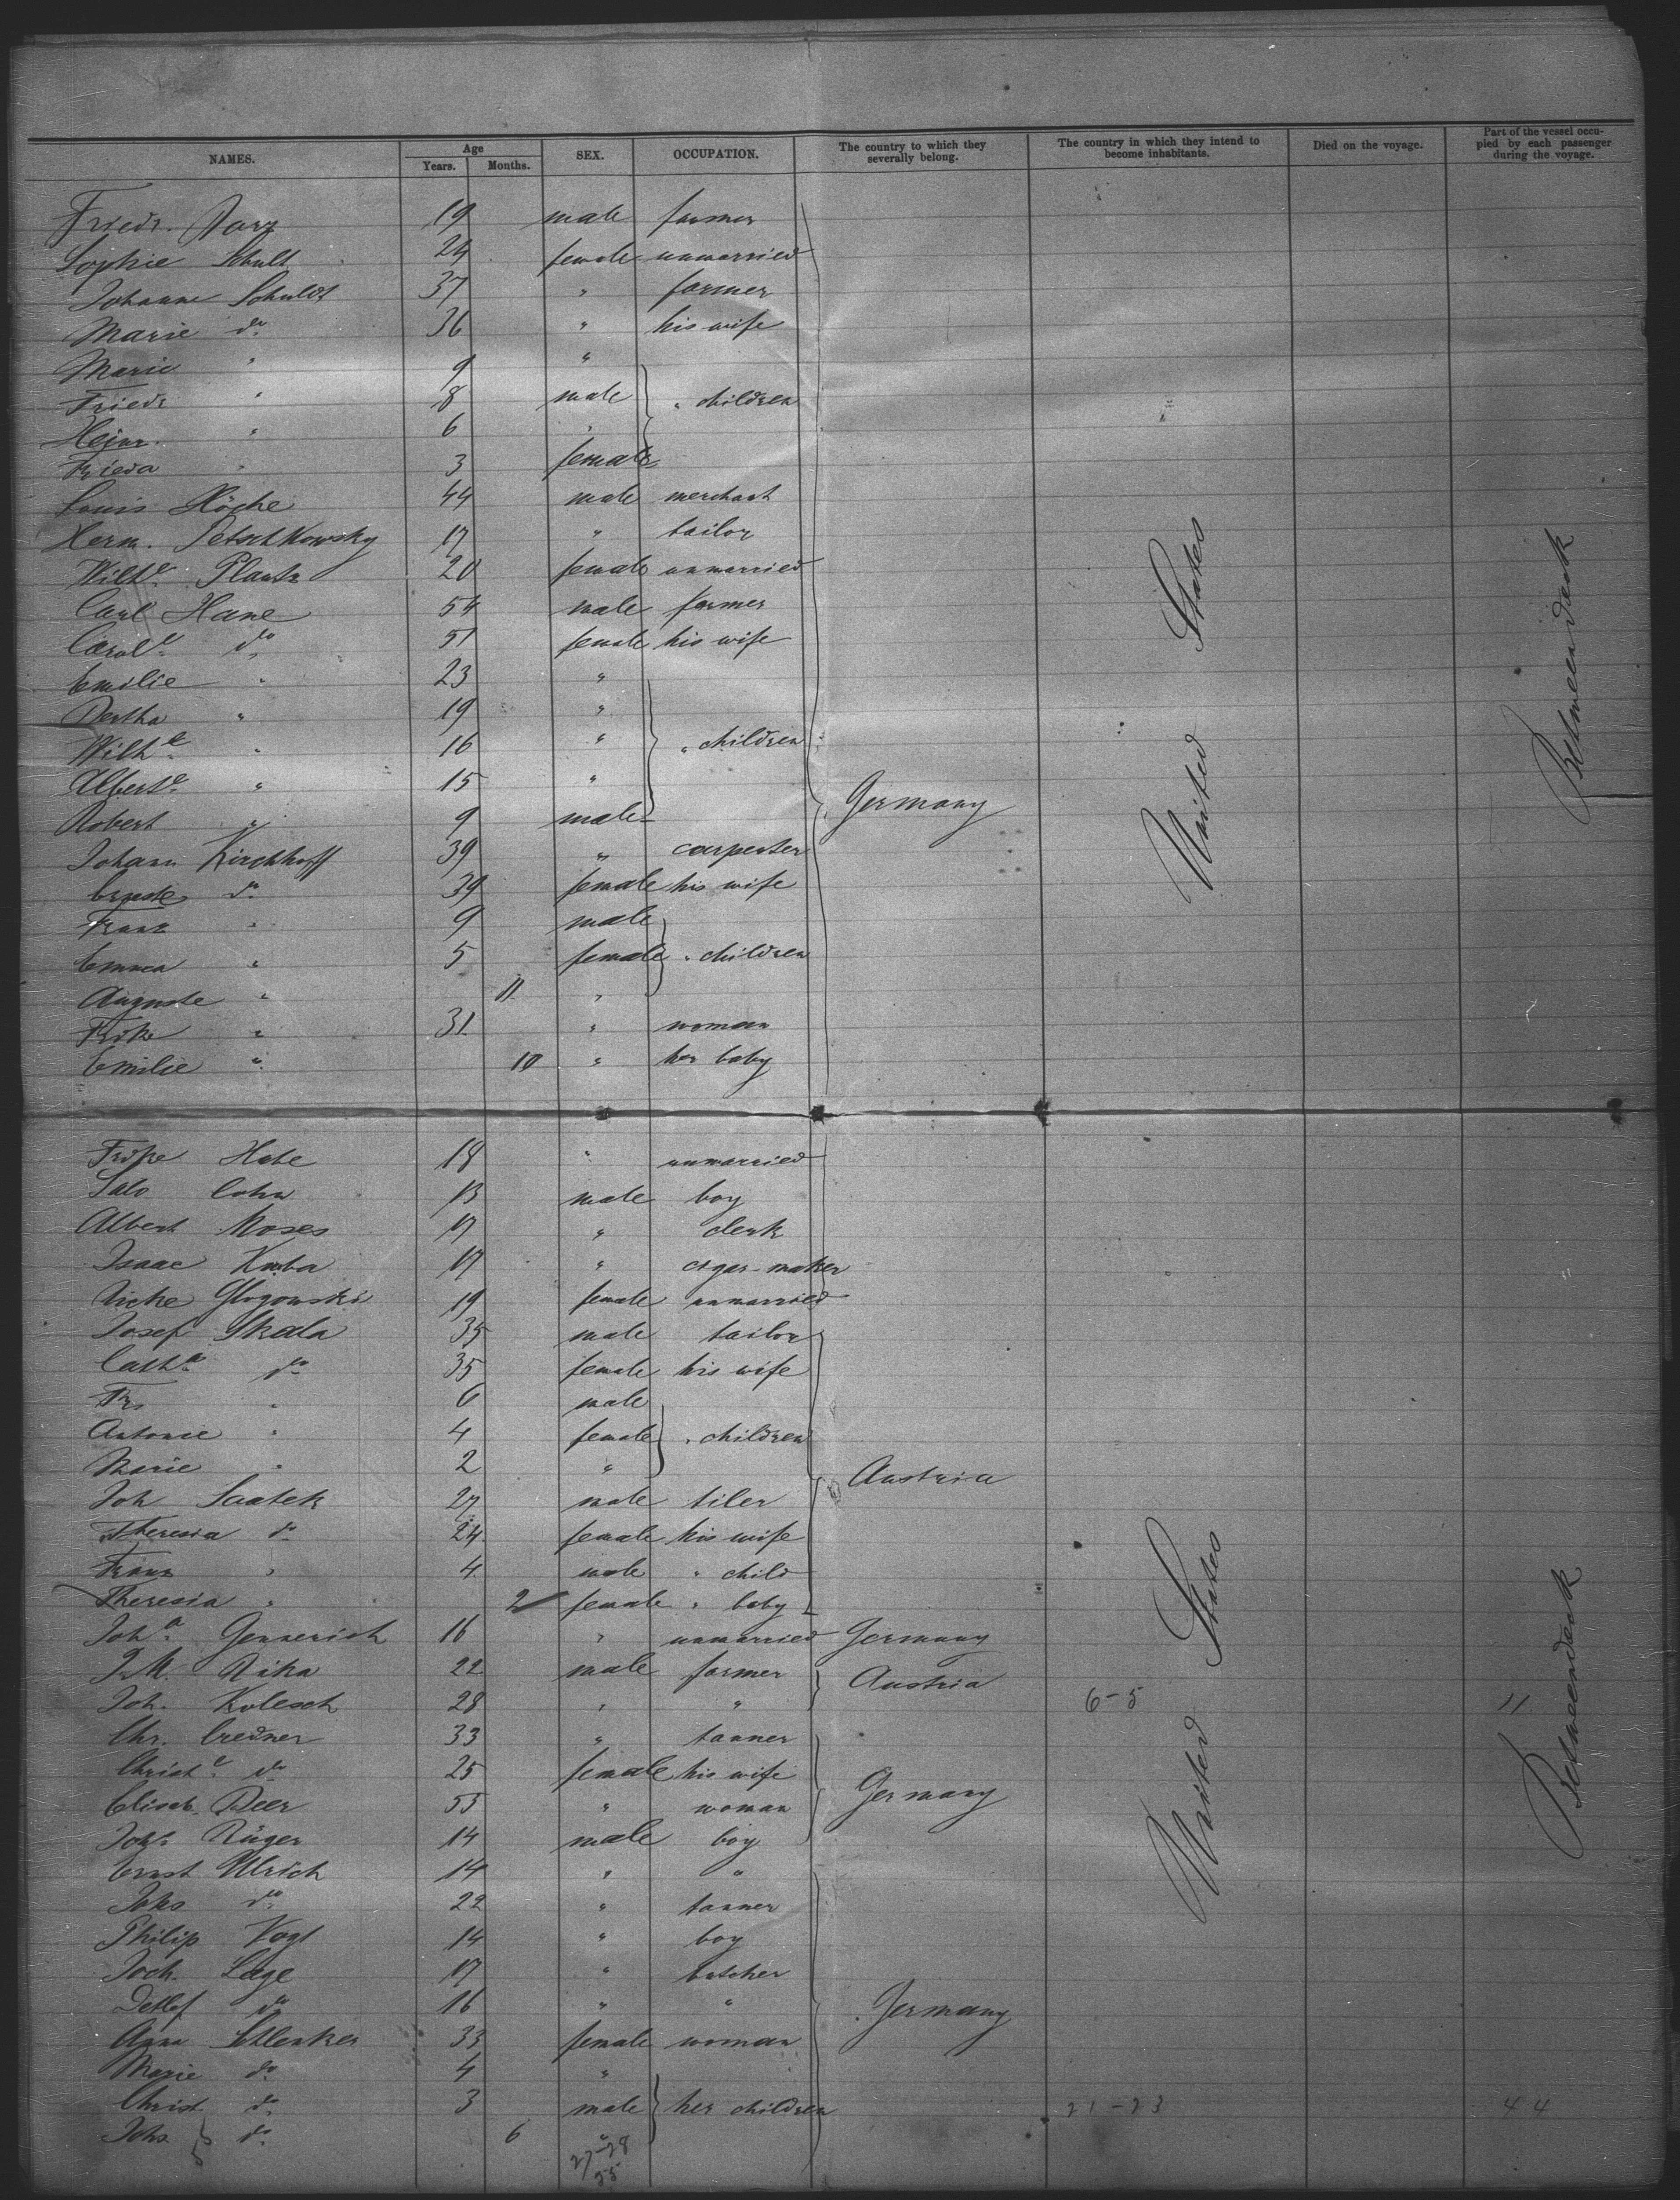 NAMES. Age Years. Months. SEX. OCCUPATION. The country to which they severally belong. The country in which they intend to become inhabitants. Died on the voyage. Part of the vessel occupied by each passenger during the voyage.
Friedr. 19 male farmer
Sophie Schult 24 female unmarried
Johann Schuldt 37 " farmer
Marie do 36 " his wife
Marie " 9 "
Friedr " 8 male " children
Heinr. " 6 "
Frieda " 3 female
Louis Höche 44 male merchant
Herm. Petschkowsky 17 " tailor
Wilhe. Plautz 20 female unmarried
Carl Hane 54 male farmer
Carole. do 51 female his wife
Emilie " 23 "
Bertha " 19 "
Wilhe. " 16 " " children
Alberte. " 15 "
Robert " 9 male Germany
Johann Kirchhoff 39 " carpenter
Ernste do 39 female his wife
Franz " 9 male
Emma " 5 female " children
Auguste " 11 "
Frdke " 31 " woman
Emilie " 10 " her baby
United States
Betweendeck
Frdke Habe 18 " unmarried
Salo Cohn 13 male boy
Albert Moses 17 " clerk
Isaac Kuba 17 " cigar-maker
Ricke Glogowski 19 female unmarried
Josef Skala 35 male tailor
Catha. do 35 female his wife
Frz " 6 male
Antonie " 4 female " children
Marie " 2 "
Austria
Joh Saatek 27 male tiler
Theresia do 24 female his wife
Franz " 4 male " child
Theresia " 2 female " baby
Joha. Gennerich 16 " unmarried Germany
Rika 22 male farmer Austria
Joh. Kolesch 28 " " 6-5 11
Chr. Credner 33 " tanner
Christe. do 25 female his wife
Elisab. Beer 55 " woman Germany
Johs Rüger 14 male boy
Ernst Ulrich 14 " "
Johs do 22 " tanner
Philip Vogt 14 " boy
Joch. Lage 17 " butcher
Detlef do 16 " "
Germany
Anna Schlenker 33 female woman
Marie do 4 "
Christ. do 3 male her children 21-23 44
Johs do 6 "
27-28
25
United States
Betweendeck